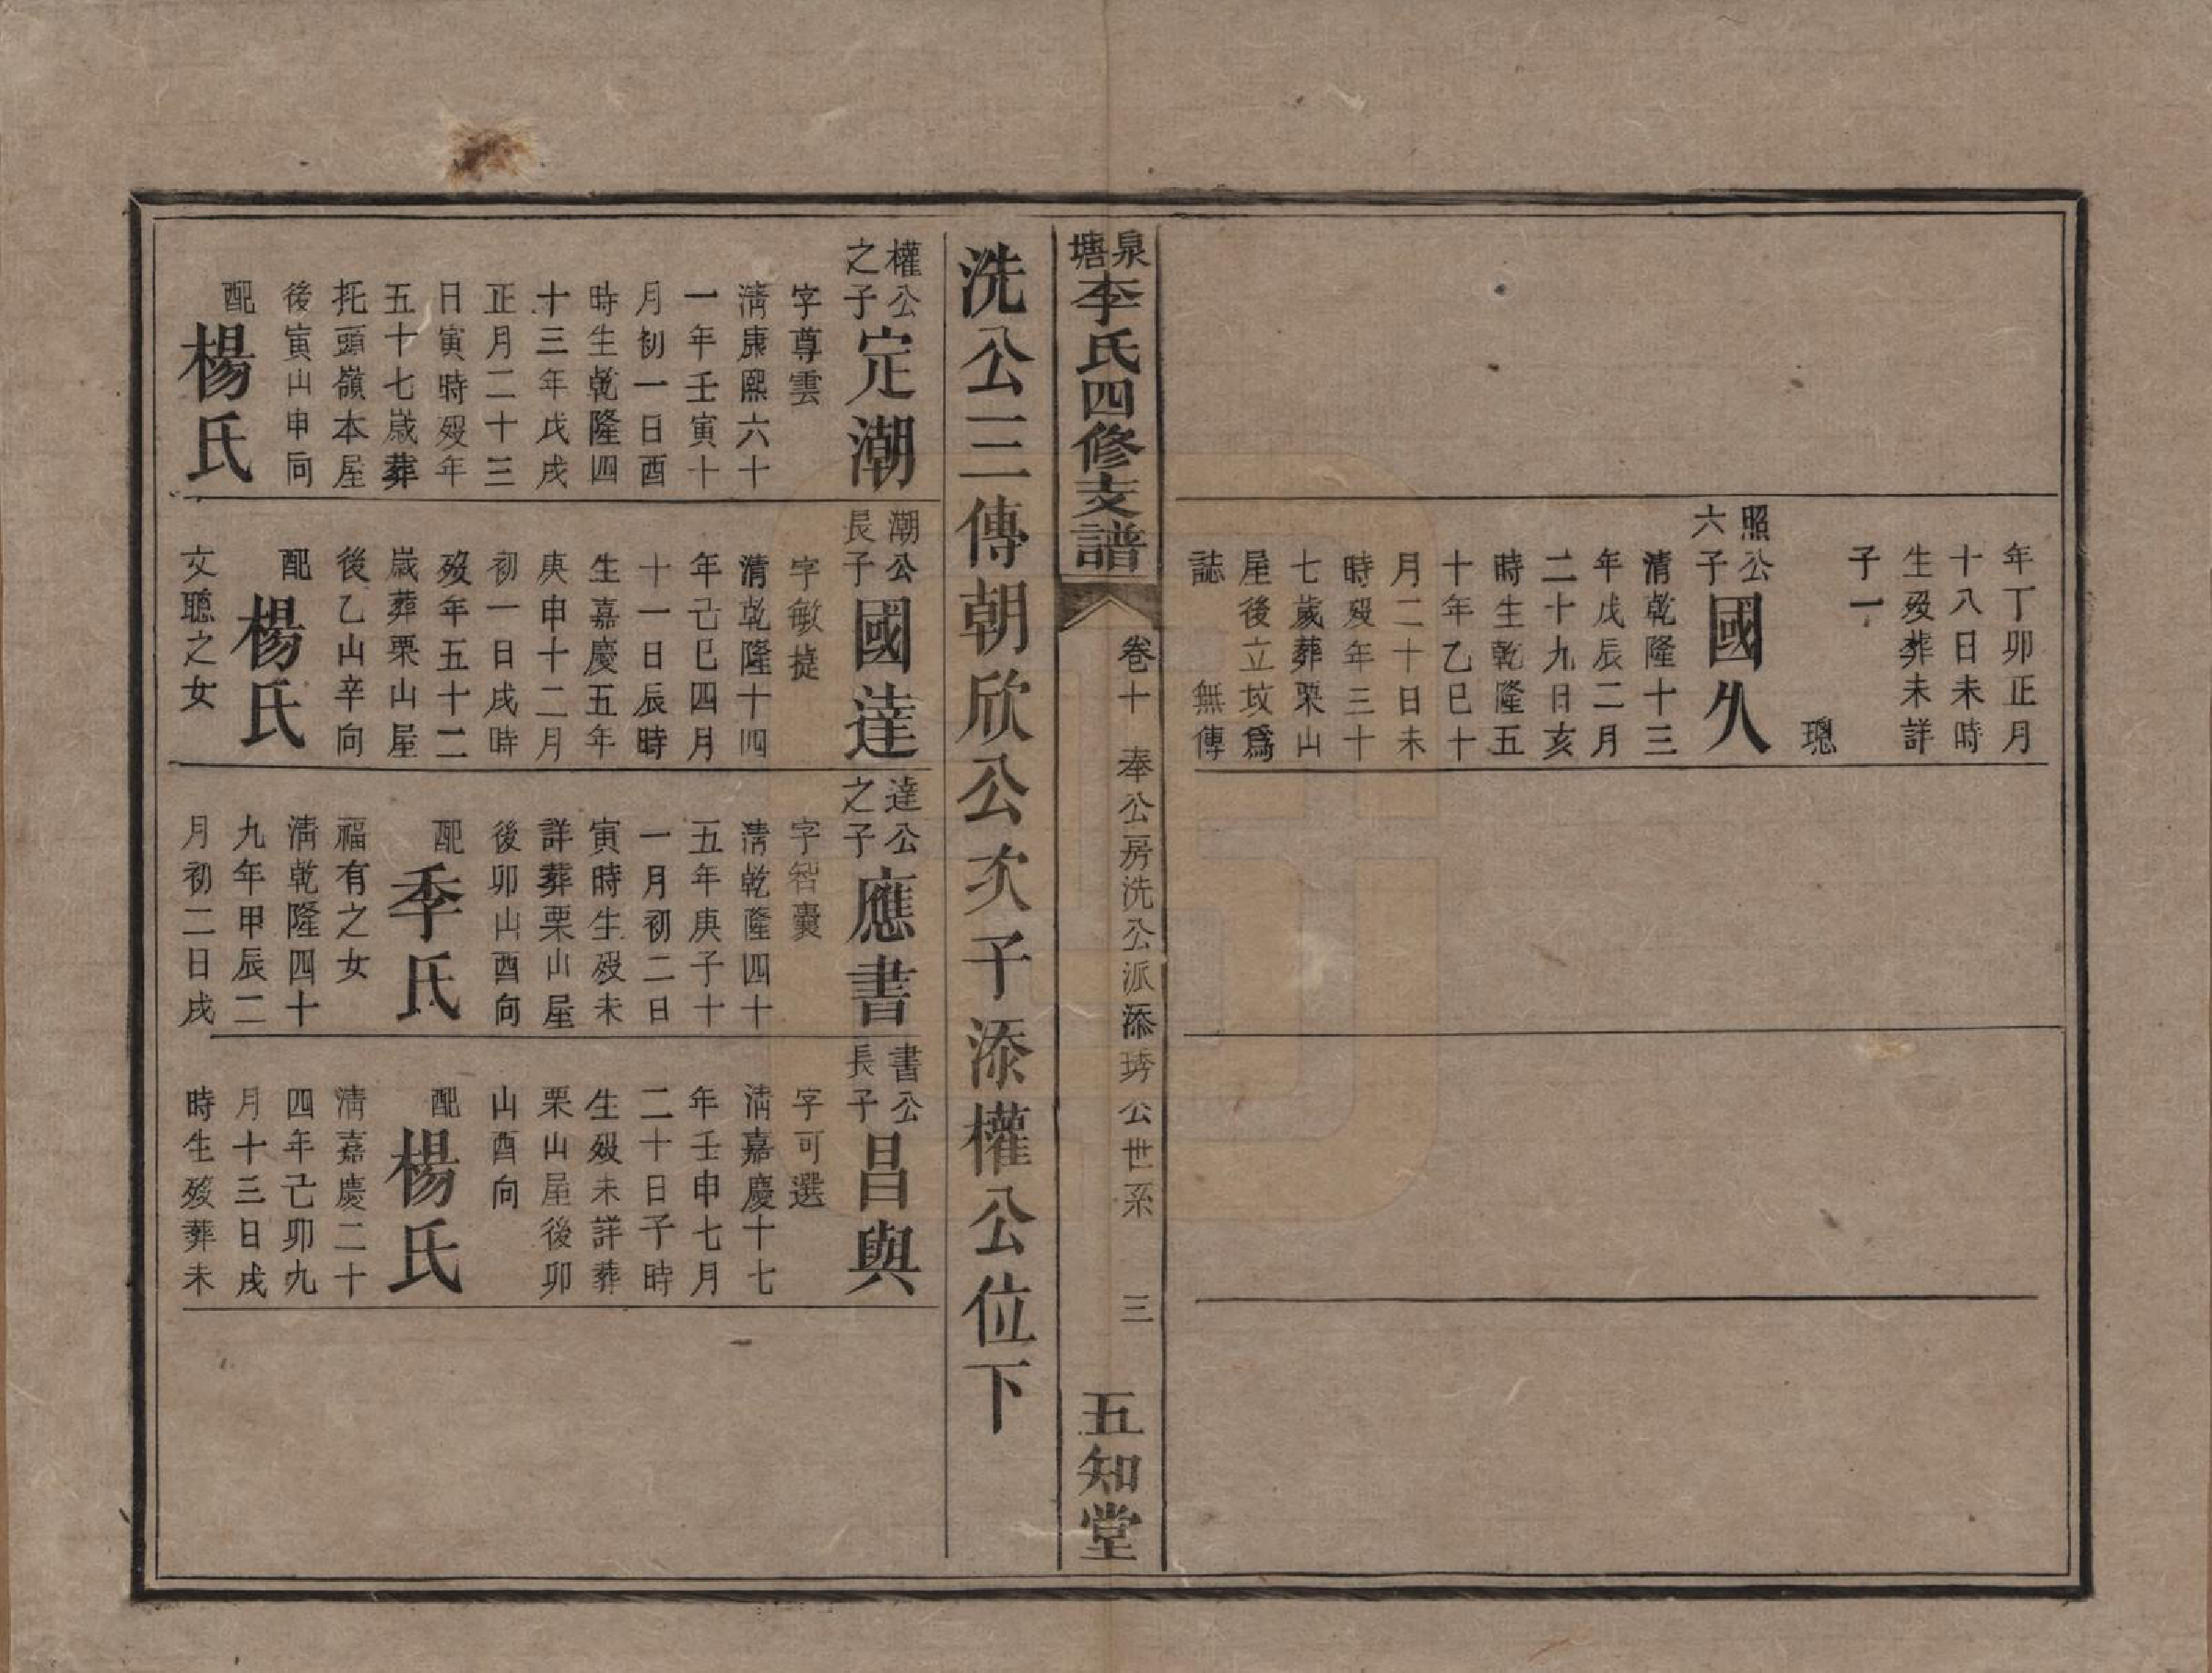 年丁卯正月
十八日未時
生歿葬未詳
子一
璁
照公
六子
國久
清乾隆十三
年戊辰二月
二十九日亥
時生乾隆五
十年乙巳十
月二十日未
時歿年三十
七歲葬栗山
屋後立坟爲
誌　無傳
泉塘李氏四修支譜
卷十
奉公房洗公派添琇公世系
三
五知堂
洗公三傳朝欣公次子添權公位下
權公
之子
定潮
字尊雲
淸康熙六十
一年壬寅十
月初一日酉
時生乾隆四
十三年戊戌
正月二十三
日寅時歿年
五十七歲葬
托頭嶺本屋
後寅山申向
配
楊氏
潮公
長子
國達
字敏㨗
清乾隆十四
年己巳四月
十一日辰時
生嘉慶五年
庚申十二月
初一日戌時
歿年五十二
歲葬栗山屋
後乙山辛向
配
楊氏
文聰之女
達公
之子
應書
字智囊
淸乾隆四十
五年庚子十
一月初二日
寅時生歿未
詳葬栗山屋
後卯山酉向
配
季氏
福有之女
淸乾隆四十
九年甲辰二
月初二日戌
書公
長子
昌與
字可選
淸嘉慶十七
年壬申七月
二十日子時
生歿未詳葬
栗山屋後卯
山酉向
配
楊氏
淸嘉慶二十
四年己卯九
月十三日戌
時生歿葬未